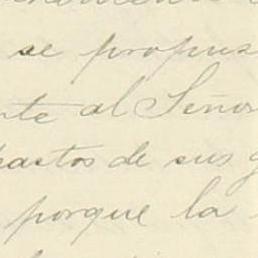 se propus
nte al Señor
pactos de sus g
porque la